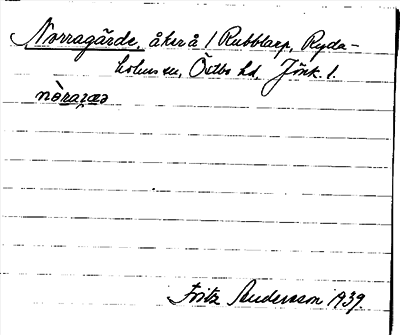 Norragärde, åker å / Rubbtarp, Ryda-
holms sn, Östbo hd, Jönk. l.
nòraʒæə
Fritz Andersson 1939.